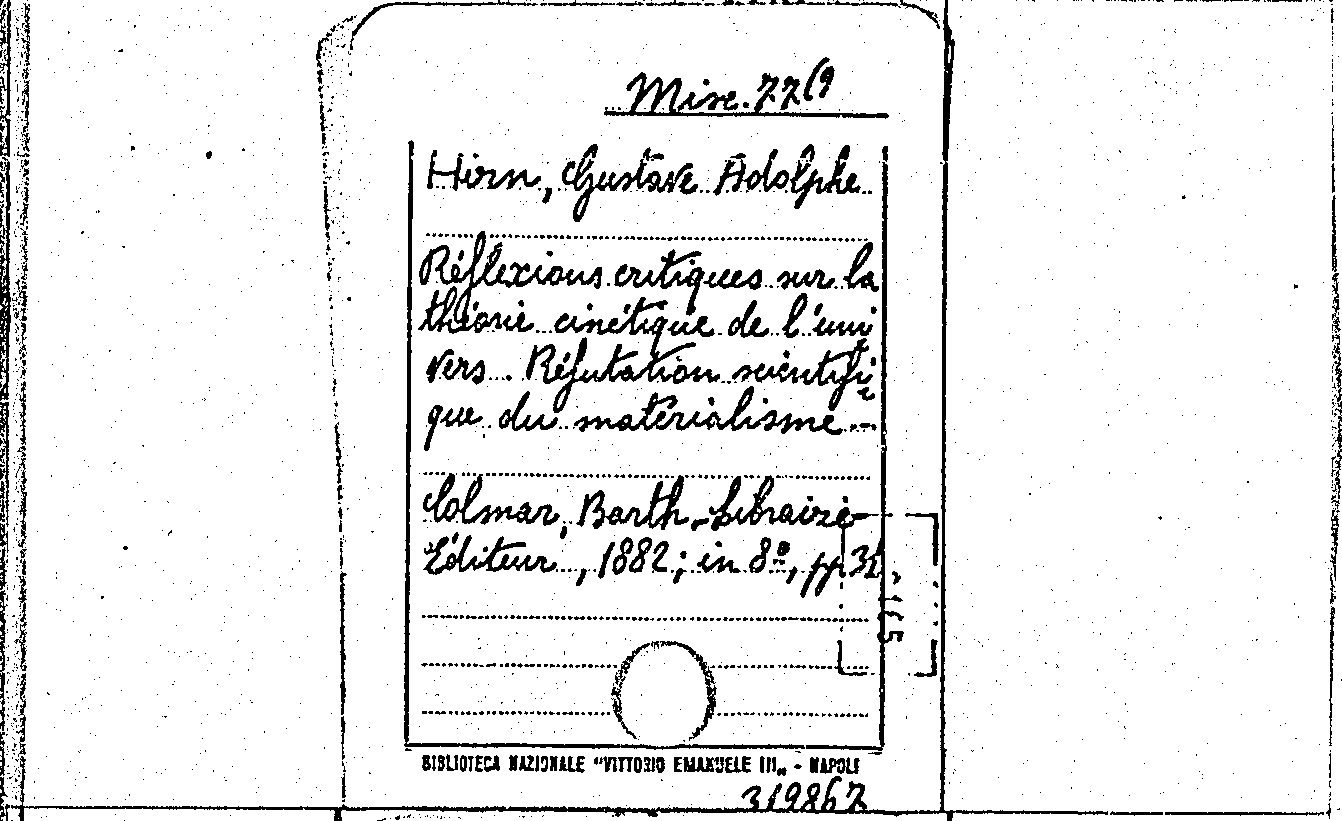 Misc. 77(9
Hirn, Gustave Adolphe
Réflexions critiques sur la
théorie cinétique de l'uni
vers. Réfutation scientifi
que du matérialisme.-
Colmar, Barth, Libraire-
Éditeur, 1882; in 8º, pp
BIBLIOTECA NAZIONALE "VITTORIO EMANUELE III„ - NAPOLI
319867